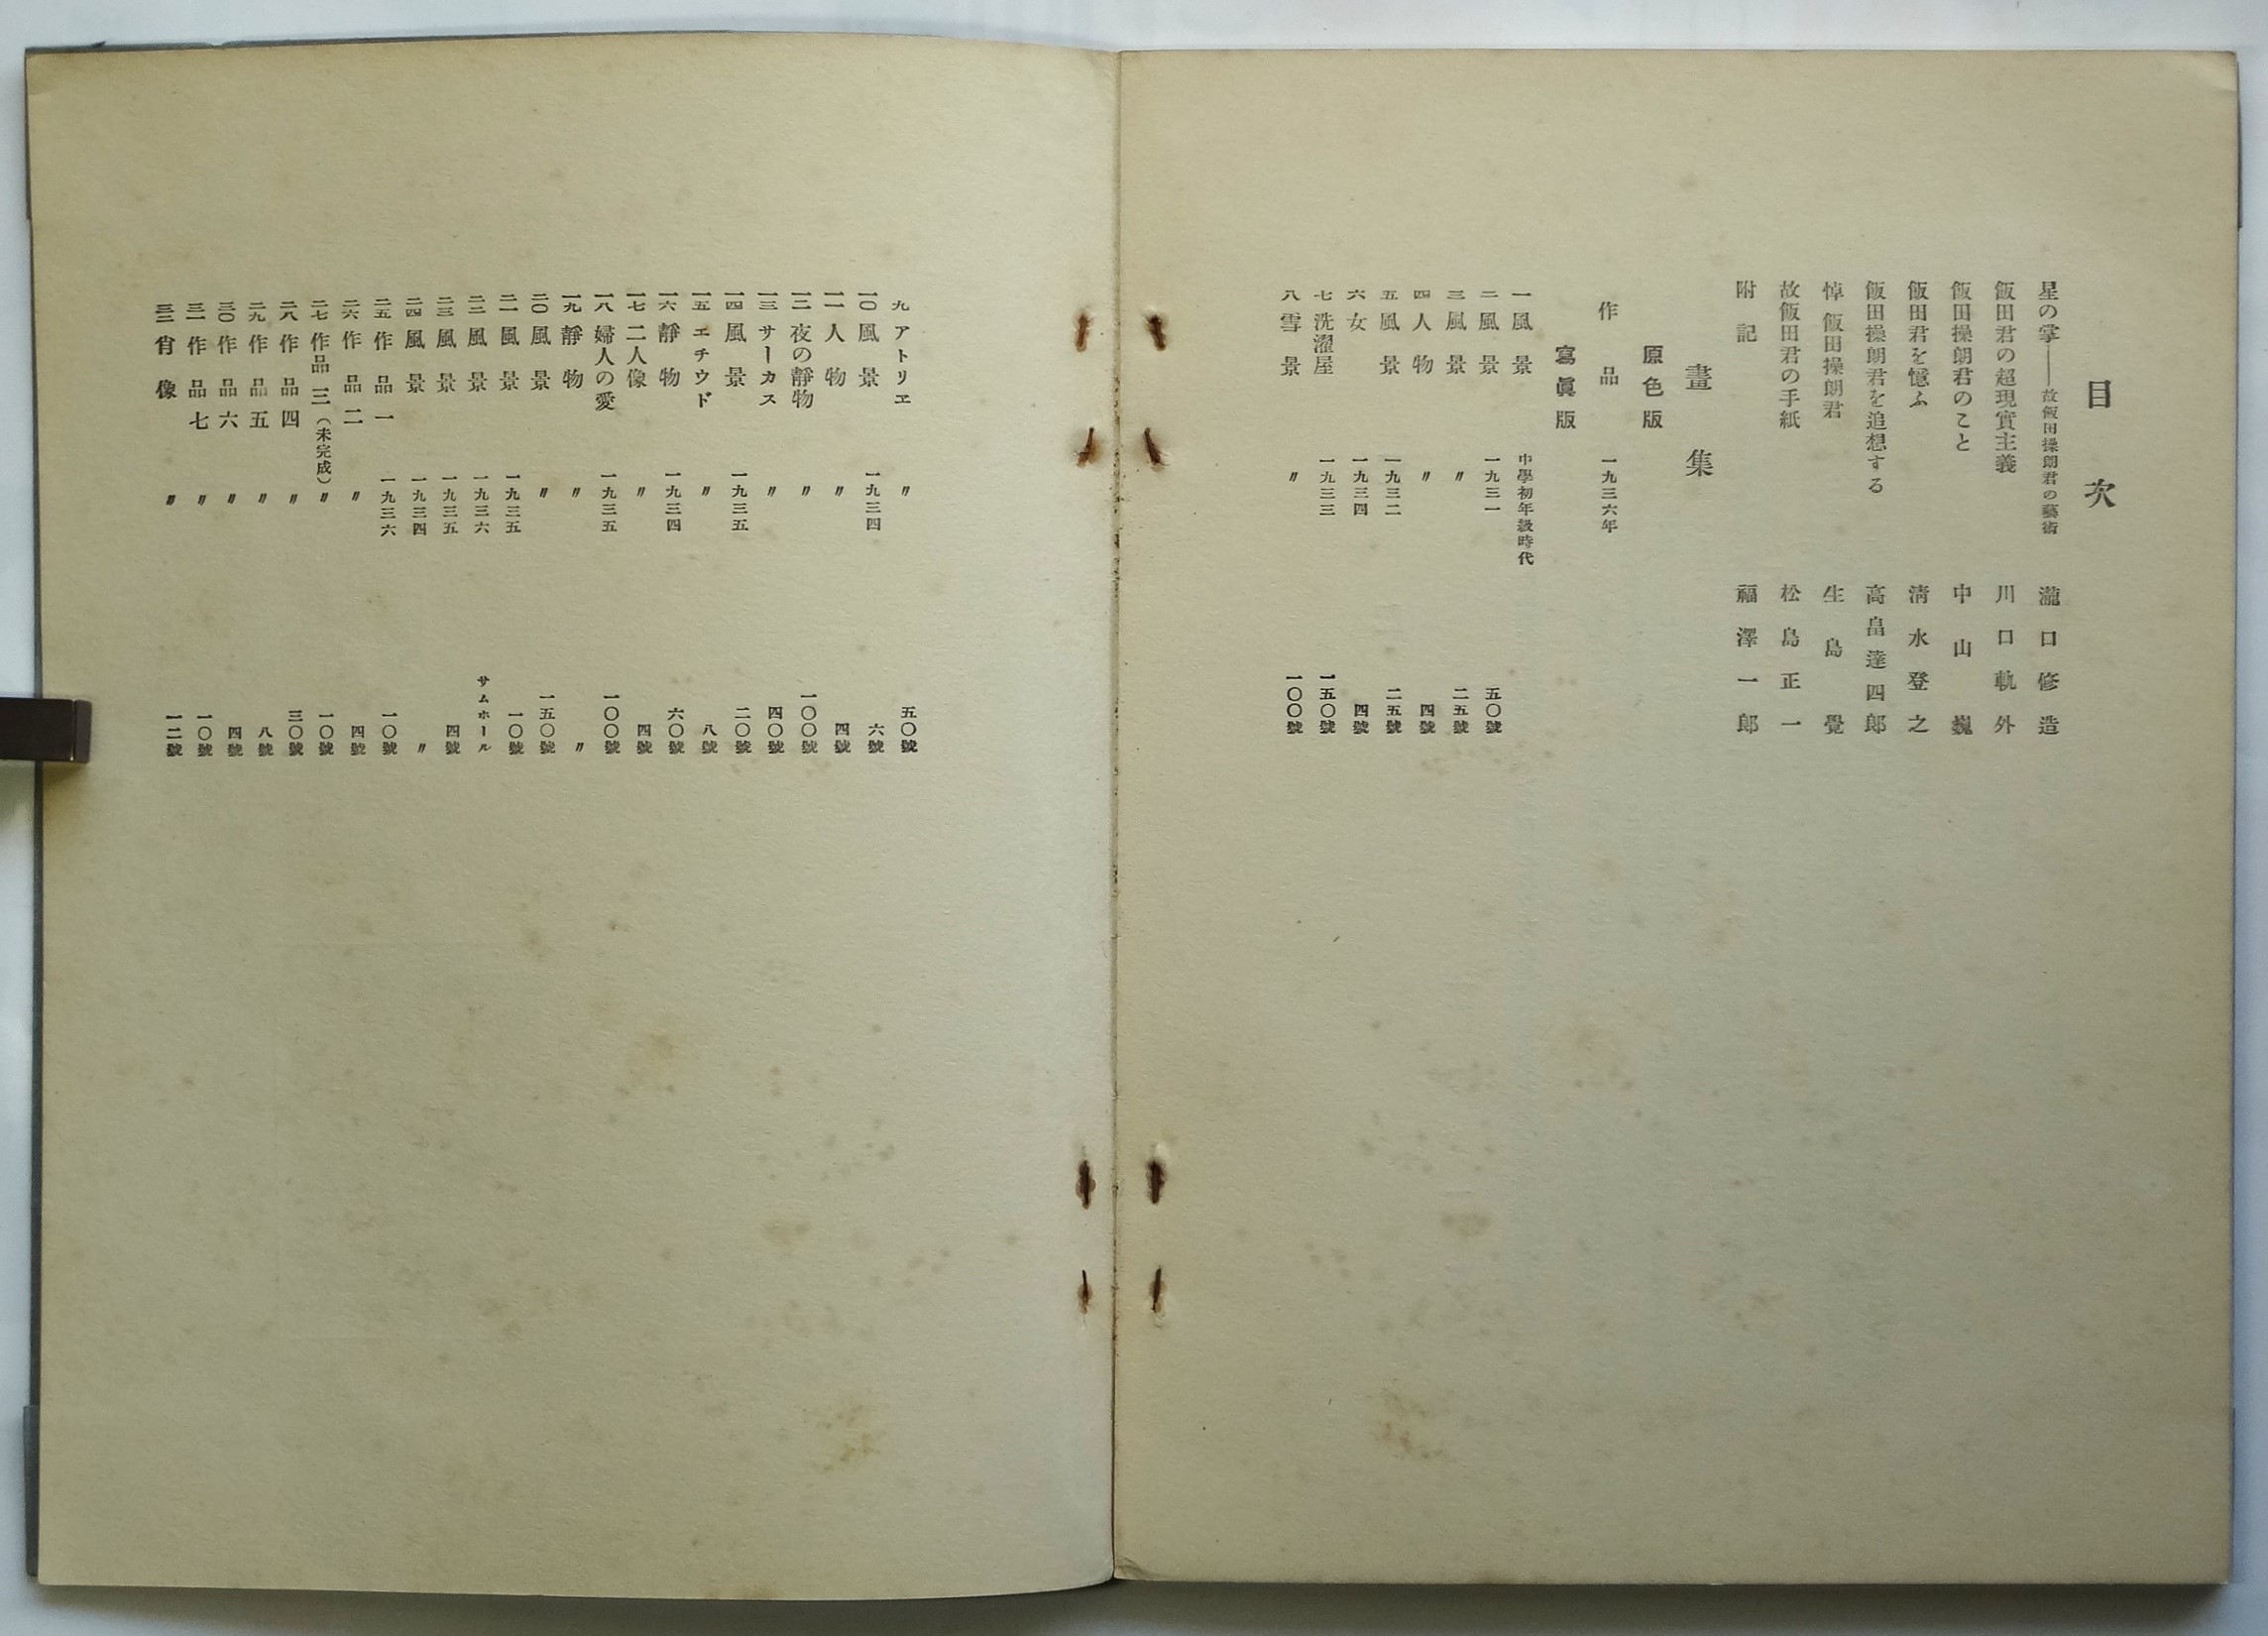 目次
星の掌――故飯田操朗君の藝術 瀧口修造
飯田君の超現實主義 川口軌外
飯田操朗君のこと 中山巍
飯田君を憶ふ 清水登之
飯田操朗君を追想する 高畠達四郎
悼飯田操朗君 生島覺
故飯田君の手紙 松島正一
附記 福澤一郎
畫集
原色版
作品 一九三六年
寫眞版
一 風景 中學初年級時代
二 風景 一九三一 五〇號
三 風景 〃 二五號
四 人物 〃 四號
五 風景 一九三二 二五號
六 女 一九三四 四號
七 洗濯屋 一九三三 一五〇號
八 雪景 〃 一〇〇號
九 アトリヱ 〃 五〇號
一〇 風景 一九三四 六號
一一 人物 〃 四號
一二 夜の靜物 〃 一〇〇號
一三 サーカス 〃 四〇號
一四 風景 一九三五 二〇號
一五 エチウド 〃 八號
一六 靜物 一九三四 六〇號
一七 二人像 〃 四號
一八 婦人の愛 一九三五 一〇〇號
一九 靜物 〃 〃
二〇 風景 〃 一五〇號
二一 風景 一九三五 一〇號
二二 風景 一九三六 サムホール
二三 風景 一九三五 四號
二四 風景 一九三四 〃
二五 作品一 一九三六 一〇號
二六 作品二 〃 四號
二七 作品三(未完成) 〃 一〇號
二八 作品四 〃 三〇號
二九 作品五 〃 八號
三〇 作品六 〃 四號
三一 作品七 〃 一〇號
三二 肖像 〃 一二號